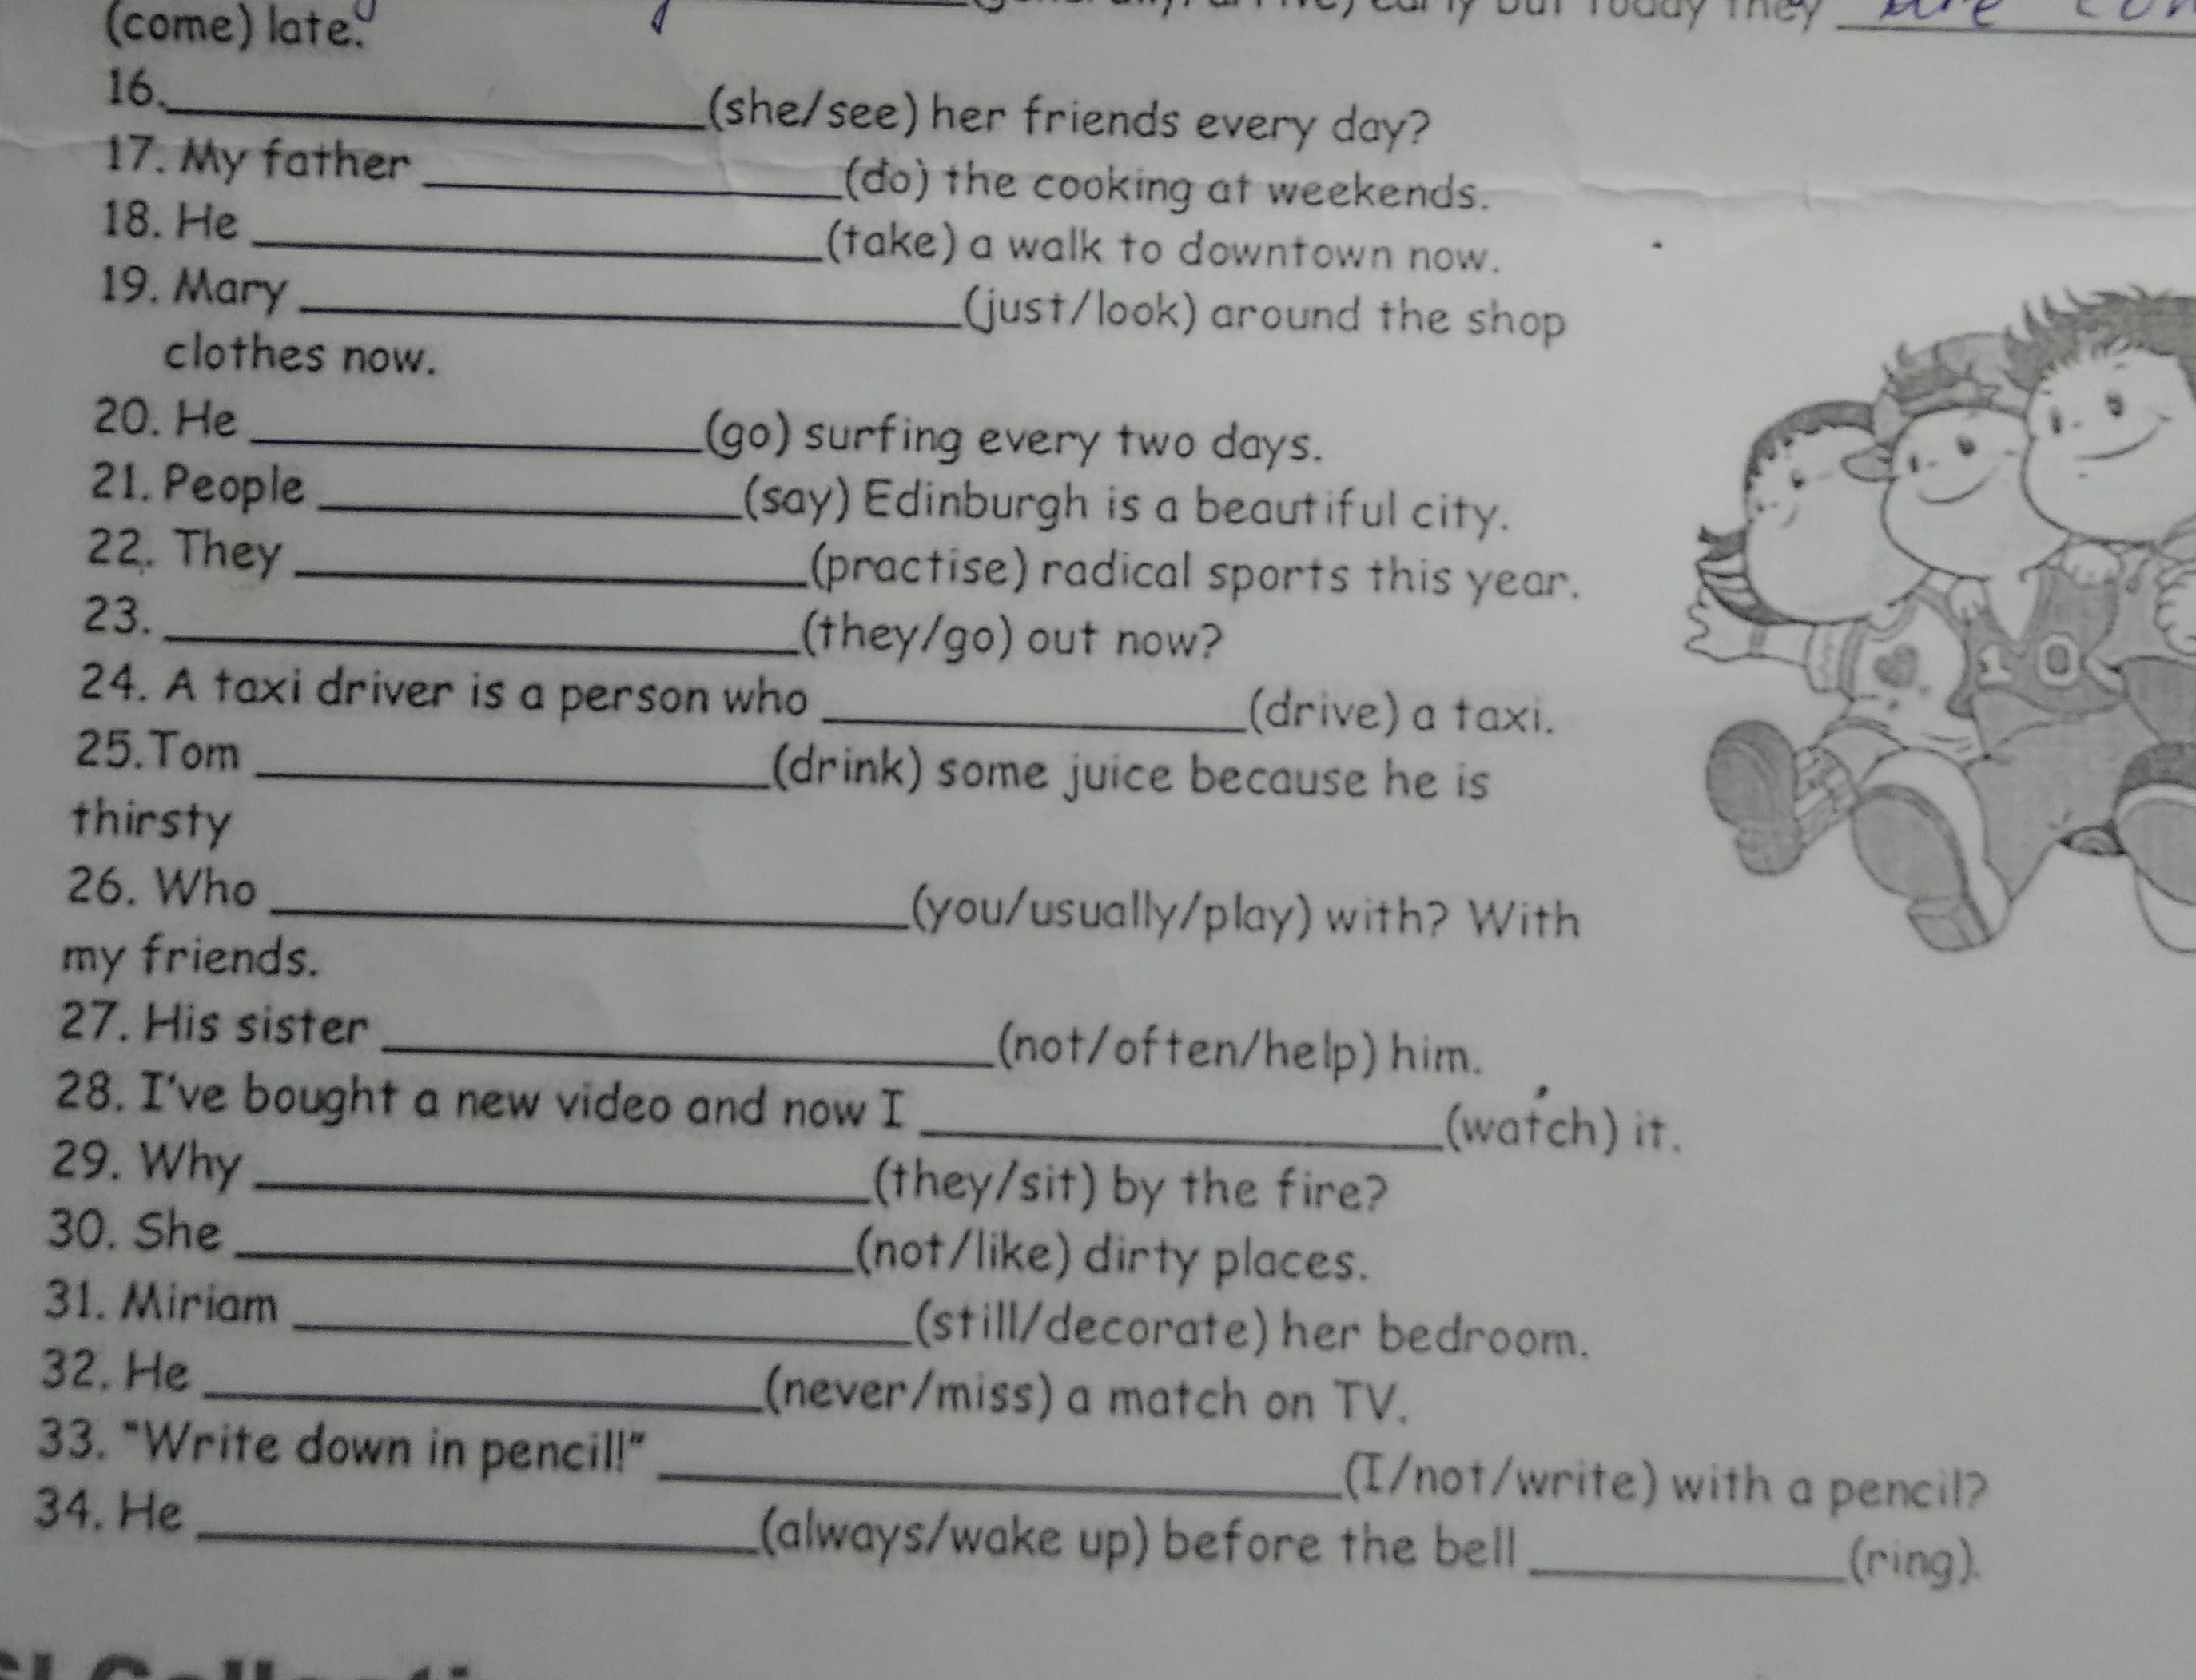 early but today they are
(come) late.
16.____________(she/see) her friends every day?
17. My father ____________(do) the cooking at weekends.
18. He ____________(take) a walk to downtown now.
19. Mary ____________(just/look) around the shop
clothes now.
20. He ____________(go) surfing every two days.
21. People ____________(say) Edinburgh is a beautiful city.
22. They ____________(practise) radical sports this year.
23. ____________(they/go) out now?
24. A taxi driver is a person who ____________(drive) a taxi.
25.Tom ____________(drink) some juice because he is
thirsty
26. Who ____________(you/usually/play) with? With
my friends.
27. His sister ____________(not/often/help) him.
28. I've bought a new video and now I ____________(watch) it.
29. Why ____________(they/sit) by the fire?
30. She ____________(not/like) dirty places.
31. Miriam ____________(still/decorate) her bedroom.
32. He ____________(never/miss) a match on TV.
33. "Write down in pencil!" ____________(I/not/write) with a pencil?
34. He ____________(always/wake up) before the bell ________(ring).
10